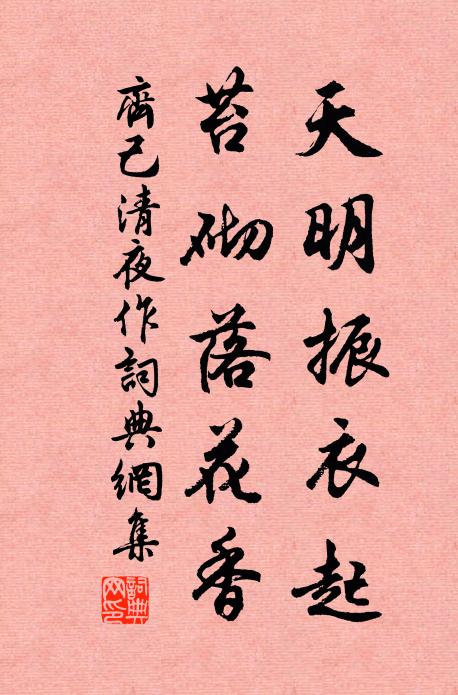 天明振衣起
苔砌落花香
齊己清夜作詞典網集
詞典網印